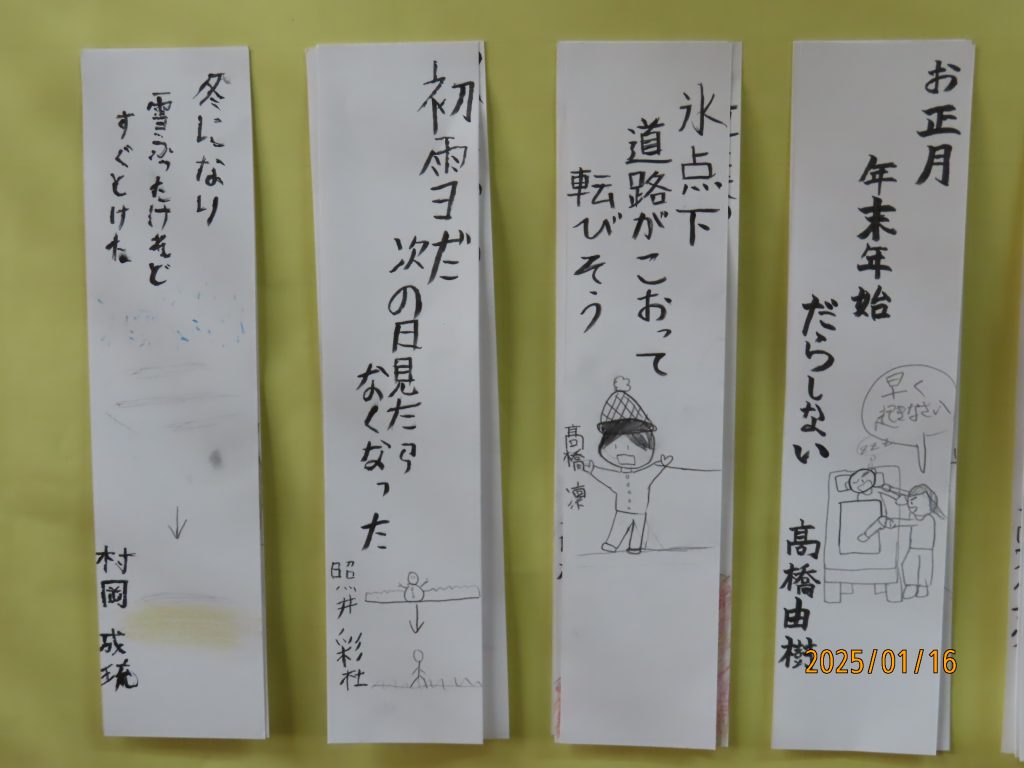 お正月
年末年始
だらしない
髙橋由樹
早く
起きなさい
氷点下
道路がこおって
転びそう
髙橋 凛
初雪だ
次の日見たら
なくなった
照井彩杜
冬になり
雪ふったけれど
すぐとけた
村岡 成琉
2025/01/16